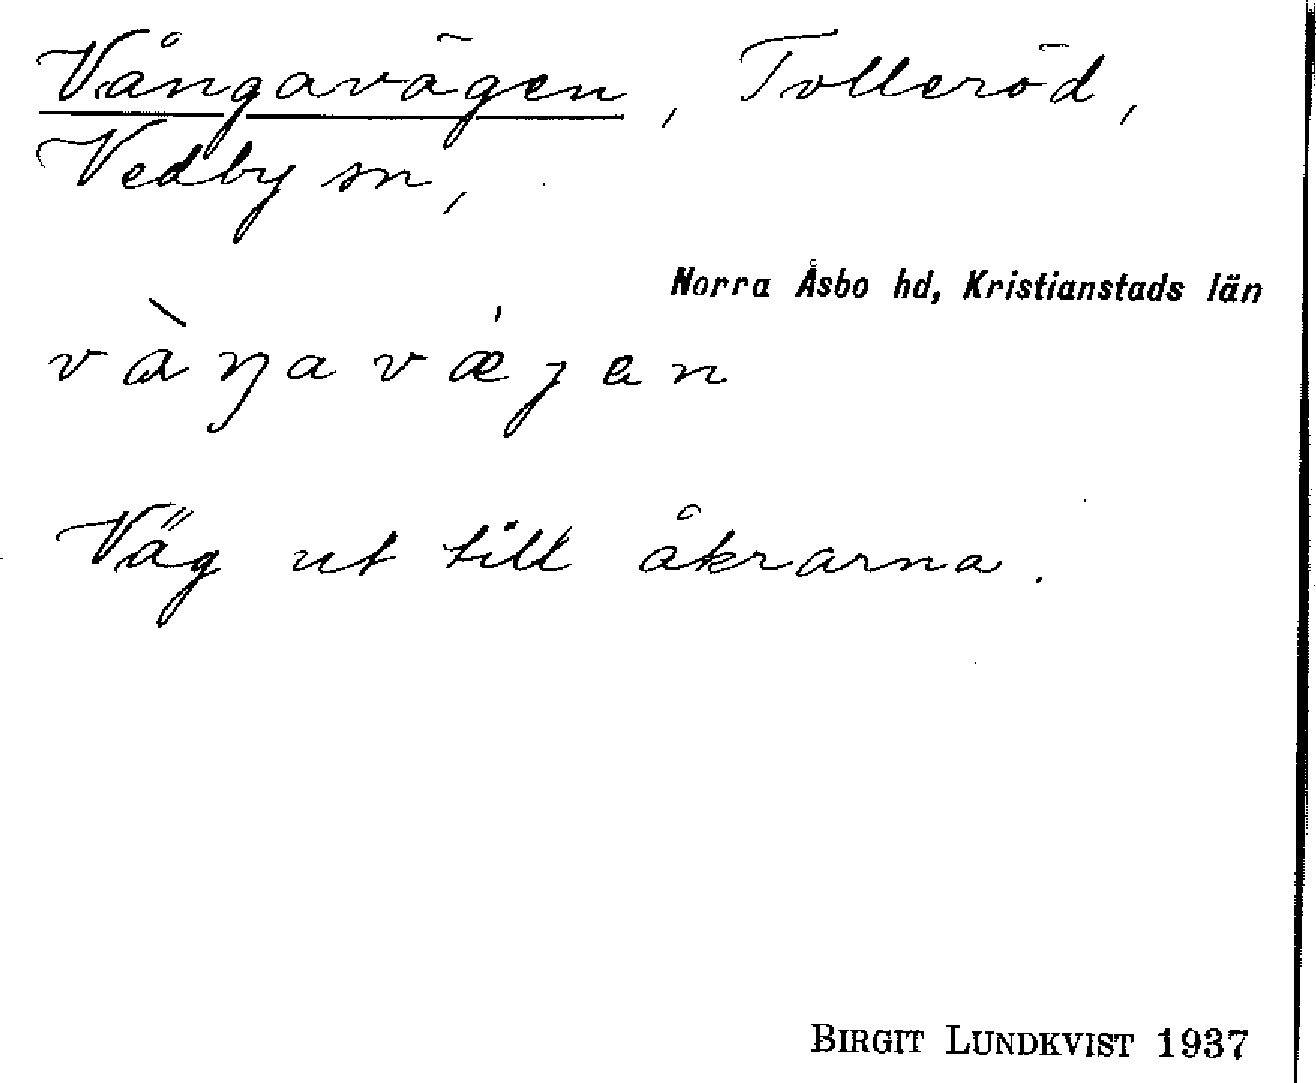 Vångavägen, Tolleröd,
Vedby sn,
Norra Åsbo hd, Kristianstads län
vàŋavǽgen
Väg ut till åkrarna.
BIRGIT LUNDKVIST 1937